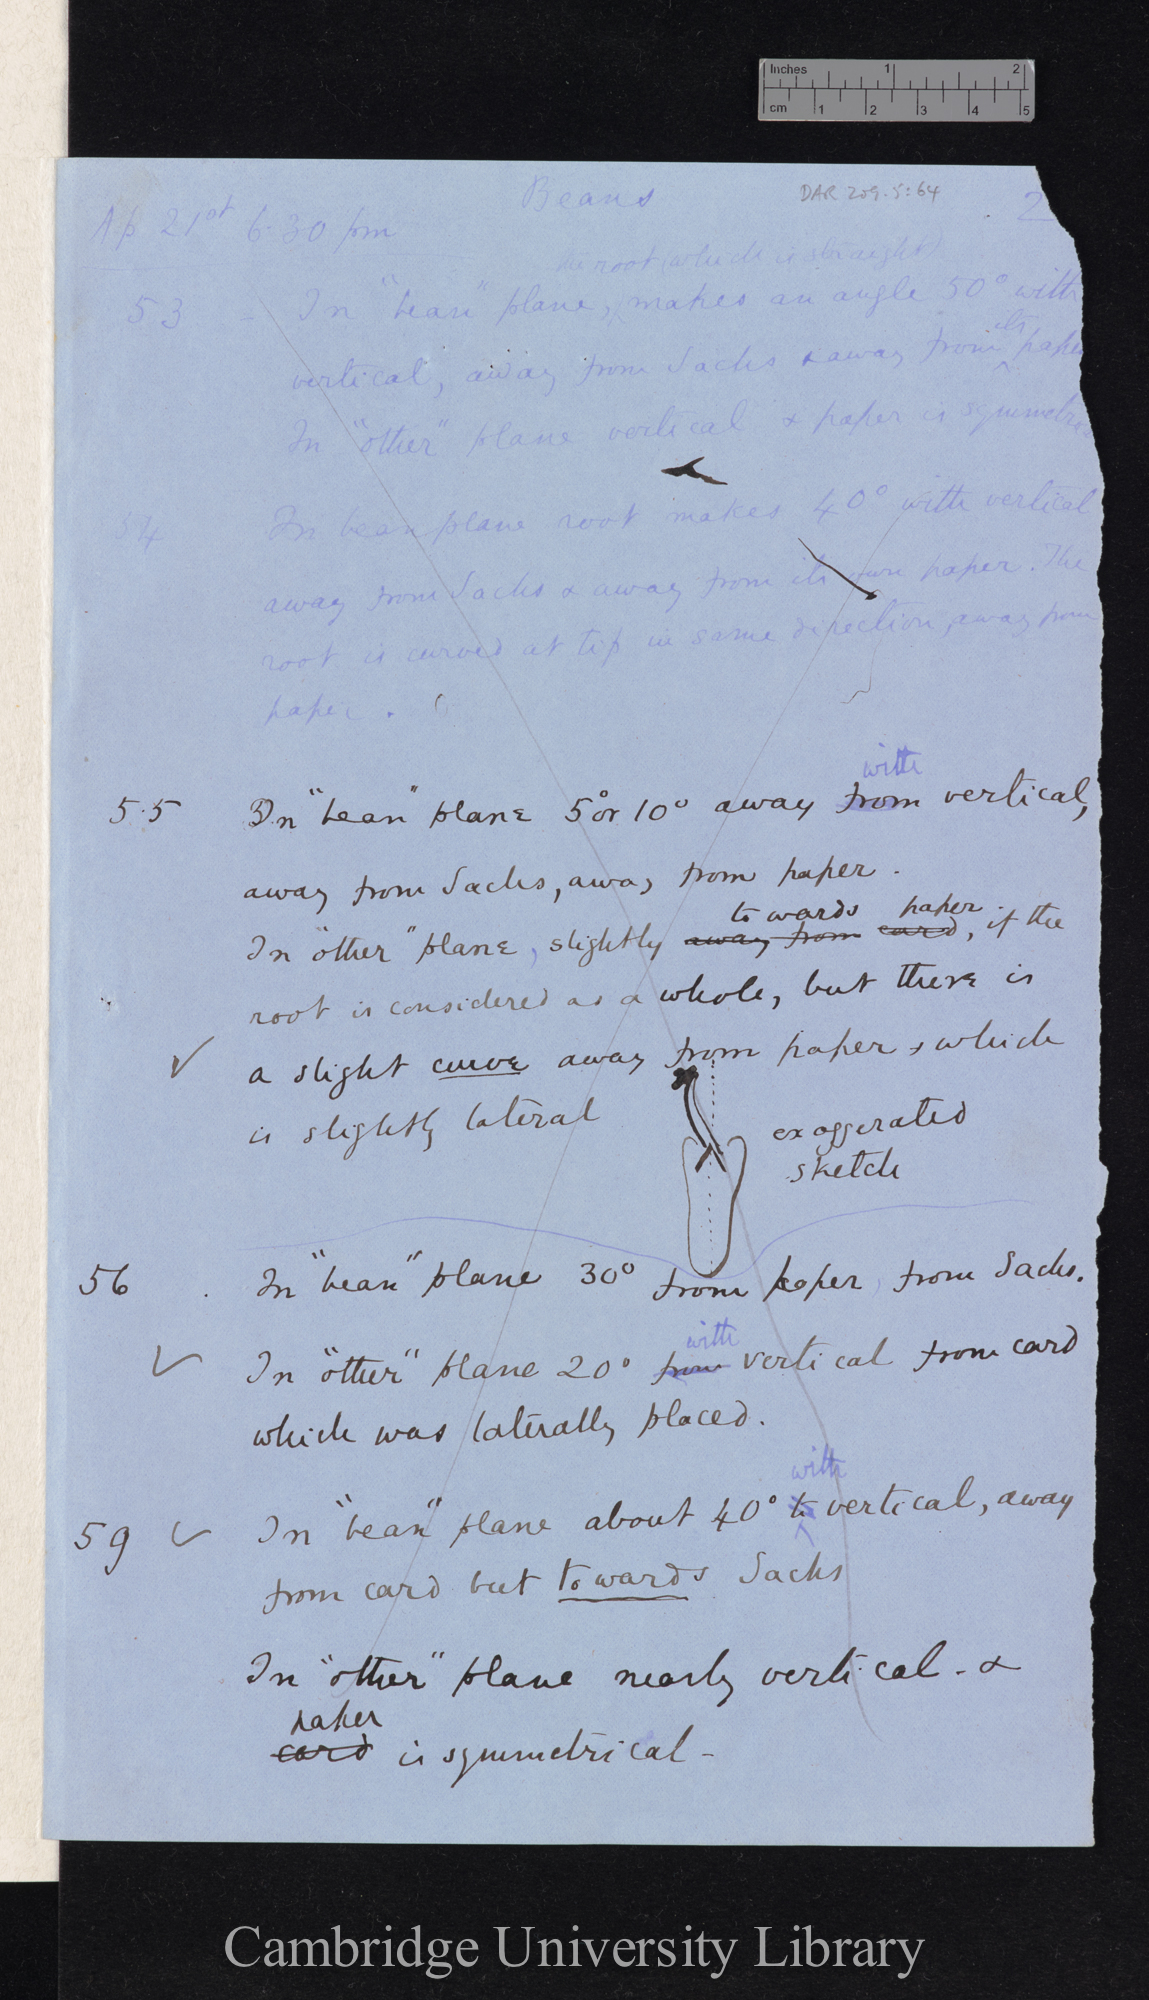 Inches 1 2
cm 1 2 3 4 5
Beans
DAR 209.5:64
2
Ap 21st 6.30 pm
the root (which is straight)
53 - In "bean" plane, makes an angle 50° with
its
vertical, away from Sachs & away from paper
In "other" plane vertical & paper is symmetrical
54 In bean plane root makes 40° with vertical
away from Sachs & away from its own paper. The
root is curved at tip in same direction, away from
paper.
with
55 In "bean" plane 5° or 10° away from vertical,
away from Sachs, away from paper.
towards paper
In "other" plane, slightly away from card, if the
root is considered as a whole, but there is
a slight curve away from paper & which
is slightly lateral
exaggerated
sketch
56 In "bean" plane 30° from paper, from Sachs.
with
In "other" plane 20° from vertical from card
which was laterally placed.
with
59 In "bean" plane about 40° to vertical, away
from card but towards Sachs
In "other" plane nearly vertical - &
paper
card is symmetrical -
Cambridge University Library